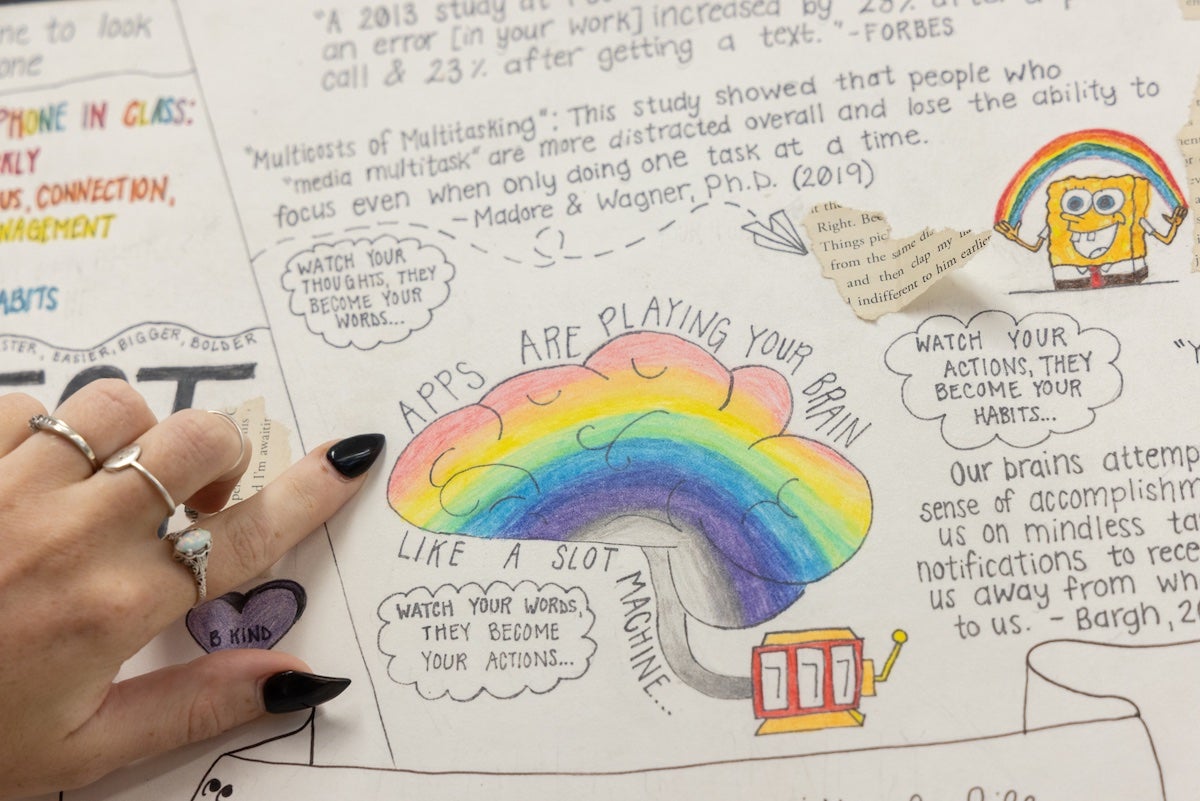 ne to look
one
PHONE IN GLASS:
KLY
US, CONNECTION,
NAGEMENT
ABITS
STER, EASIER, BIGGER, BOLDER
B KIND
"A 2013 study at
an error [in your work] increased by 28% after a p
call & 23% after getting a text." -FORBES
"Multicosts of Multitasking": This study showed that people who
"media multitask" are more distracted overall and lose the ability to
focus even when only doing one task at a time.
-Madore & Wagner, Ph.D. (2019)
WATCH YOUR
THOUGHTS, THEY
BECOME YOUR
WORDS...
it the
Right. Bec
Things pic
from the same dis
and then clap my ha
indifferent to him earlier
APPS ARE PLAYING YOUR BRAIN
LIKE A SLOT MACHINE...
WATCH YOUR WORDS,
THEY BECOME
YOUR ACTIONS...
777
WATCH YOUR
ACTIONS, THEY
BECOME YOUR
HABITS...
Our brains attemp
sense of accomplishm
us on mindless ta
notifications to rece
us away from wh
to us. - Bargh, 2
d I'm awaitin